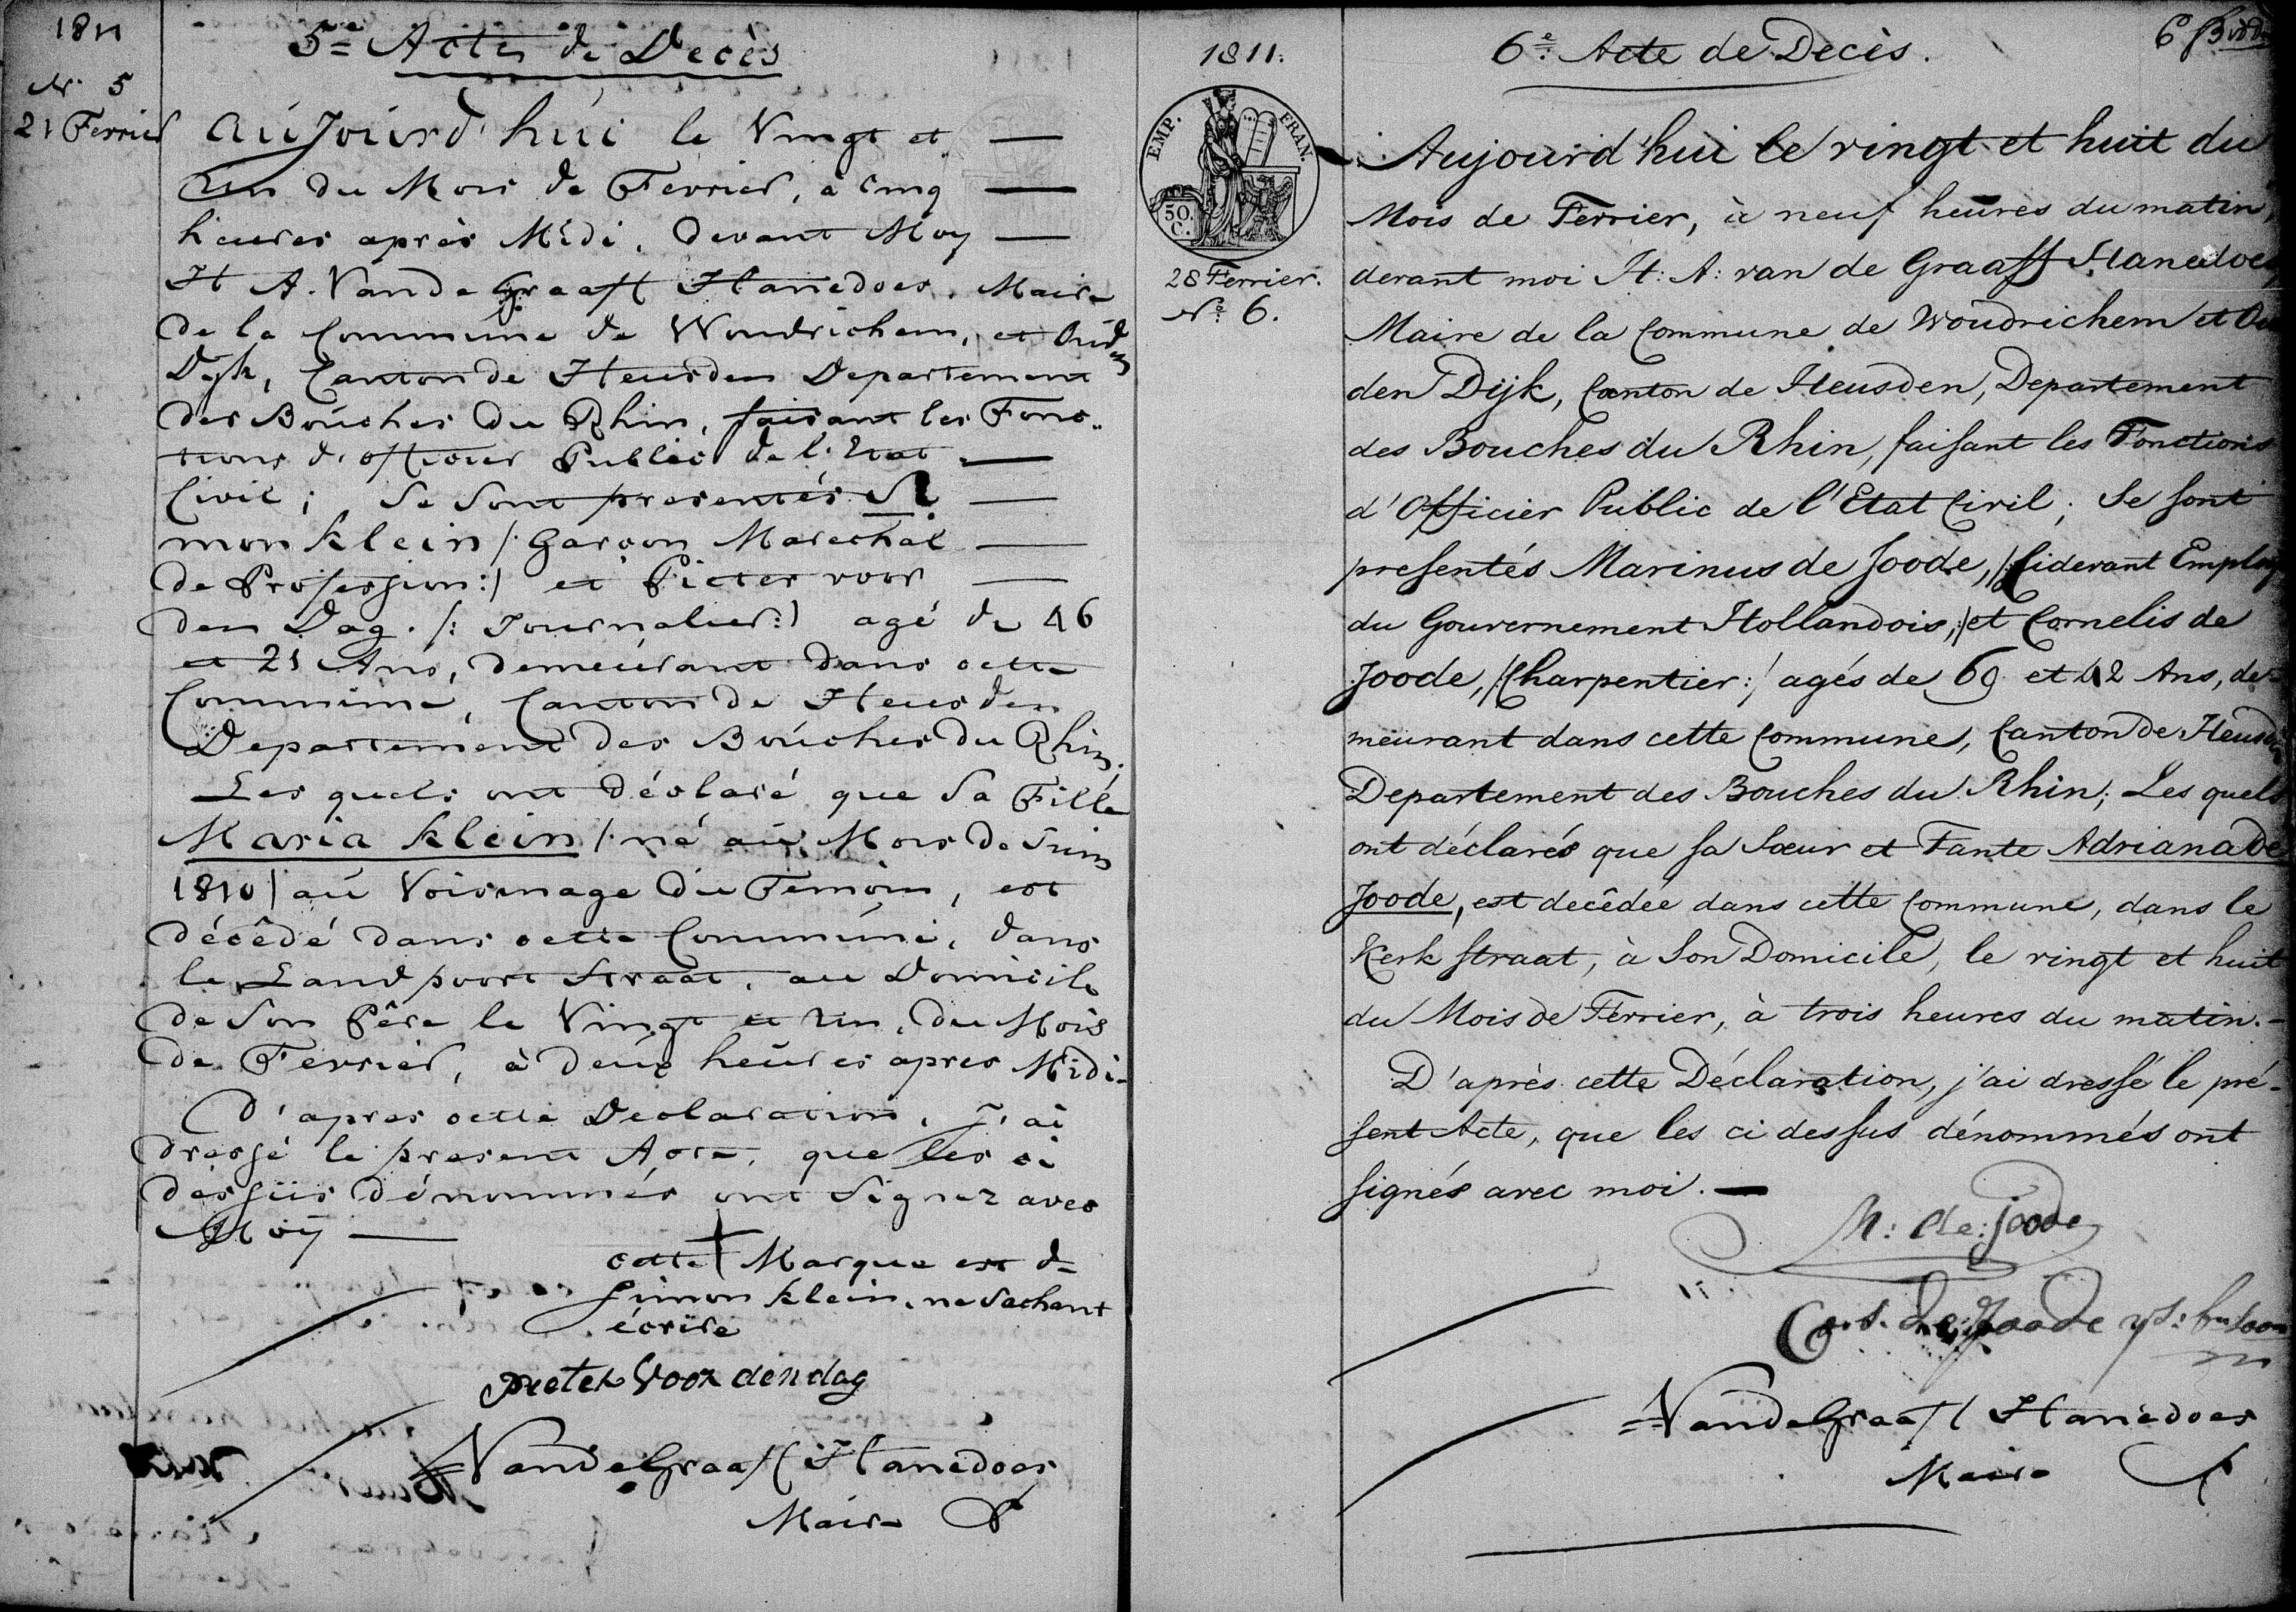 1811
5e Acte de Decès
Nr. 5
21 Fevrier
Aujourd'hui le Vingt et
Un du Mois de Fevrier, à cinq
heures après Midi, devant Moy
H A. Van de Graaff Hanedoes, Maire
de la Commune de Woudrichem, et Ouden
Dyk, Canton de Heusden Departement
des Bouches du Rhin, faisant les Fonc-
tions d'officier Public de l'Etat
Civil; Se Sont presentés Si
mon Klein /: Garçon Marechal
de Profession :/ et Pieter voor
den Dag. /: Journalier :/ agé de 46
et 21 Ans, demeurant dans cette
Commune, Canton de Heusden
Departement des Bouches du Rhin.
Les quels ont déclaré que Sa Fille
Maria Klein /: né au Mois de Juin
1810 / au Voisinage du Temoin, est
décêdé dans cette Commune, dans
le Landpoort Straat, au Domicile
de Son Pêre le Vingt et Un, du Mois
de Fevrier, à deux heures apres Midi-
D'apres cette Declaration, J'ai
dressé le present Acte, que les ci
dessus dénommés ont Signez avec
Moÿ
cette + Marque est de
Simon Klein, ne Sachant
écrire
pieter Voor den dag
Van de Graaff Hanedoes
Maire
1811.
6e Acte de Decès.
6
EMP. FRAN.
50.
C.
28 Fevrier.
No 6.
Aujourd'hui le vingt et huit du
Mois de Fevrier, à neuf heures du matin,
devant moi H: A: van de Graaff Hanedoes
Maire de la Commune de Woudrichem et Ou
den Dijk, Canton de Heusden, Departement
des Bouches du Rhin, faisant les Fonctions
d'Officier Public de l'Etat Civil; Se sont
presentés Marinus de Joode, /: Cidevant Employ
du Gouvernement Hollandois, :/ et Cornelis de
Joode, /: Charpentier :/ agés de 69 et 42 Ans, de-
meurant dans cette Commune, Canton de Heusden
Departement des Bouches du Rhin; Les quels
ont déclarés que sa Sœur et Tante Adriana de
Joode, est decêdée dans cette Commune, dans le
Kerk straat, à Son Domicile, le vingt et huit
du Mois de Fevrier, à trois heures du matin.-
D'après cette Déclaration, j'ai dressé le pré-
sent Acte, que les ci dessus dénommés ont
signés avec moi.
M: de: Joode
Cors. de Joode
Van de Graaff Hanedoes
Maire